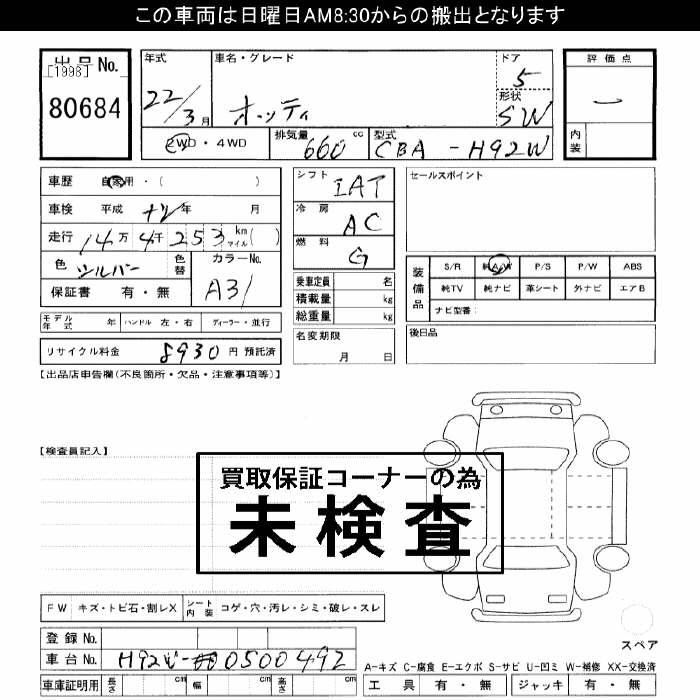 この車両は日曜日AM8:30からの搬出となります
出品No.
[1998]
80684
年式
22/3月
車名・グレード
オッティ
ドア
5
形状
SW
評価点
ー
内装
2WD・4WD
排気量 660 cc
型式 CBA-H92W
車歴 自家用・( )
車検 平成 年 月
走行 14万4千253 km マイル( )
色 シルバー 色替
カラーNo. A31
保証書 有・無
シフト IAT
冷房 AC
燃料 G
乗車定員 名
積載量 kg
総重量 kg
名変期限
月 日
セールスポイント
装備品
S/R 純A/W P/S P/W ABS
純TV 純ナビ 革シート 外ナビ エアB
ナビ型番:
後日品
モデル年式 年 ハンドル 左・右 ディーラー・並行
リサイクル料金 8930 円 預託済
【出品店申告欄(不良箇所・欠品・注意事項等)】
【検査員記入】
買取保証コーナーの為
未検査
FW キズ・トビ石・割レX シート内装 コゲ・穴・汚レ・シミ・破レ・スレ
スペア
登録No.
車台No. H92W-0500492
車庫証明用 長さ 幅 高さ
A-キズ C-腐食 E-エクボ S-サビ U-凹ミ W-補修 XX-交換済
工具 有・無 ジャッキ 有・無